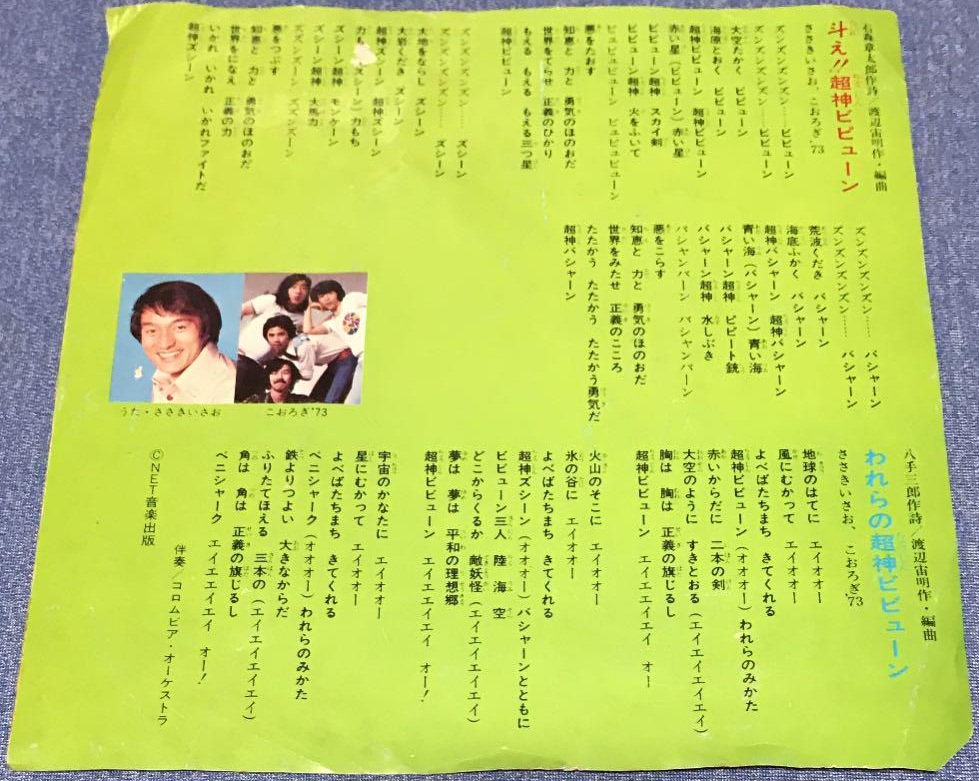 石森章太郎作詩/渡辺宙明作・編曲
斗え!!超神ビビューン
ささきいさお、こおろぎ'73
ズンズンズンズン…… ビビューン
ズンズンズンズン…… ビビューン
大空たかく ビビューン
海原とおく ビビューン
超神ビビューン 超神ビビューン
赤い星(ビビューン)赤い星
ビビューン超神 スカイ剣
ビビューン超神 火をふいて
ビュンビューン ビュンビューン
悪をたおす
知恵と 力と 勇気のほのおだ
世界をてらせ 正義のひかり
もえる もえる もえる三つ星
超神ビビューン
ズンズンズンズン…… ズシーン
ズンズンズンズン…… ズシーン
大地をならし ズシーン
大岩くだき ズシーン
超神ズシーン 超神ズシーン
力もち(ズシーン)力もち
ズシーン超神 モンケーン
ズシーン超神 大馬力
ズズンズーン ズズンズーン
悪をつぶす
知恵と 力と 勇気のほのおだ
世界をになえ 正義の力
いかれ いかれ いかれファイトだ
超神ズシーン
ズンズンズンズン…… バシャーン
ズンズンズンズン…… バシャーン
荒波くだき バシャーン
海底ふかく バシャーン
超神バシャーン 超神バシャーン
青い海(バシャーン)青い海
バシャーン超神 ビビート銃
バシャーン超神 水しぶき
バシャンバーン バシャンバーン
悪をこらす
知恵と 力と 勇気のほのおだ
世界をみたせ 正義のこころ
たたかう たたかう たたかう勇気だ
超神バシャーン
うた・ささきいさお
こおろぎ'73
八手三郎作詩/渡辺宙明作・編曲
われらの超神ビビューン
ささきいさお、こおろぎ'73
地球のはてに エイオオー
風にむかって エイオオー
よべばたちまち きてくれる
超神ビビューン(オオオー)われらのみかた
赤いからだに 二本の剣
大空のように すきとおる(エイエイエイエイ)
胸は 胸は 正義の旗じるし
超神ビビューン エイエエイエイ オー
火山のそこに エイオオー
氷の谷に エイオオー
よべばたちまち きてくれる
超神ズシーン(オオオー)バシャーンとともに
ビビューン三人 陸 海 空
どこからくるか 敵妖怪(エイエイエイエイ)
夢は 夢は 平和の理想郷
超神ビビューン エイエエイエイ オー!
宇宙のかなたに エイオオー
星にむかって エイオオー
よべばたちまち きてくれる
ベニシャーク(オオオー)われらのみかた
鉄よりつよい 大きなからだ
ふりたてほえる 三本の(エイエイエイエイ)
角は 角は 正義の旗じるし
ベニシャーク エイエエイエイ オー!
伴奏/コロムビア・オーケストラ
ⒸNET音楽出版